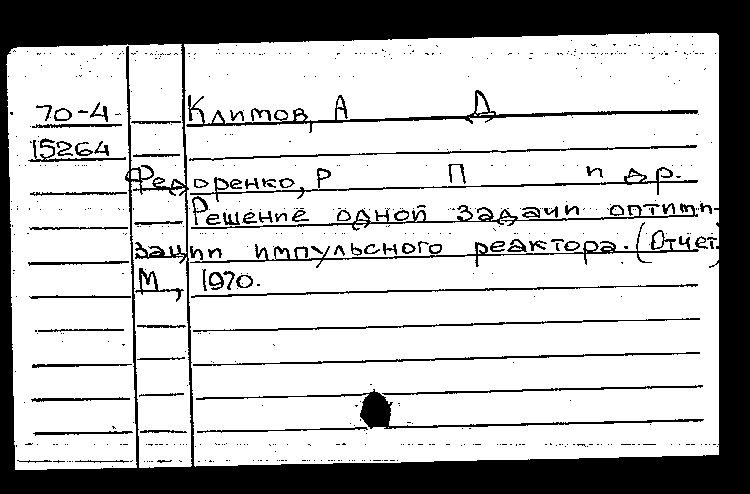 70-4 Климов, А Д
15264
Федоренко, Р П и др.
Решение одной задачи оптими-
зации импульсного реактора. (Отчет)
М, 1970.